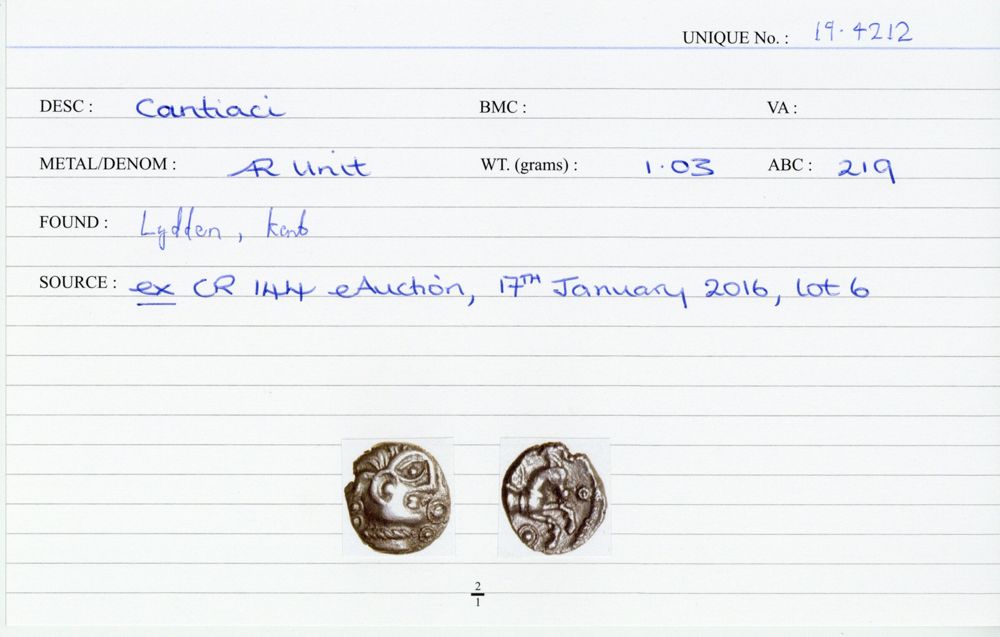 UNIQUE No. : 19.4212
DESC : Cantiaci BMC : VA :
METAL/DENOM : AR Unit WT. (grams) : 1.03 ABC : 219
FOUND : Lydden, Kent
SOURCE : ex CR 144 eAuction, 17TH January 2016, lot 6
2
1